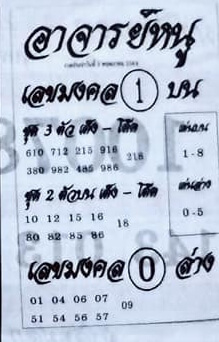 อาจารย์หนู
งวดประจำวันที่ 2 พฤษภาคม
เลขมงคล 1 บน
ชุด 3 ตัว เต็ง - โต๊ด
610 712 215 916
218
380 982 485 986
เด่นบน
1-8
ชุด 2 ตัวบน เต็ง - โต๊ด
10 12 15 16
18
80 82 85 86
เด่นล่าง
0-5
เลขมงคล 0 ล่าง
01 04 06 07
09
51 54 56 57